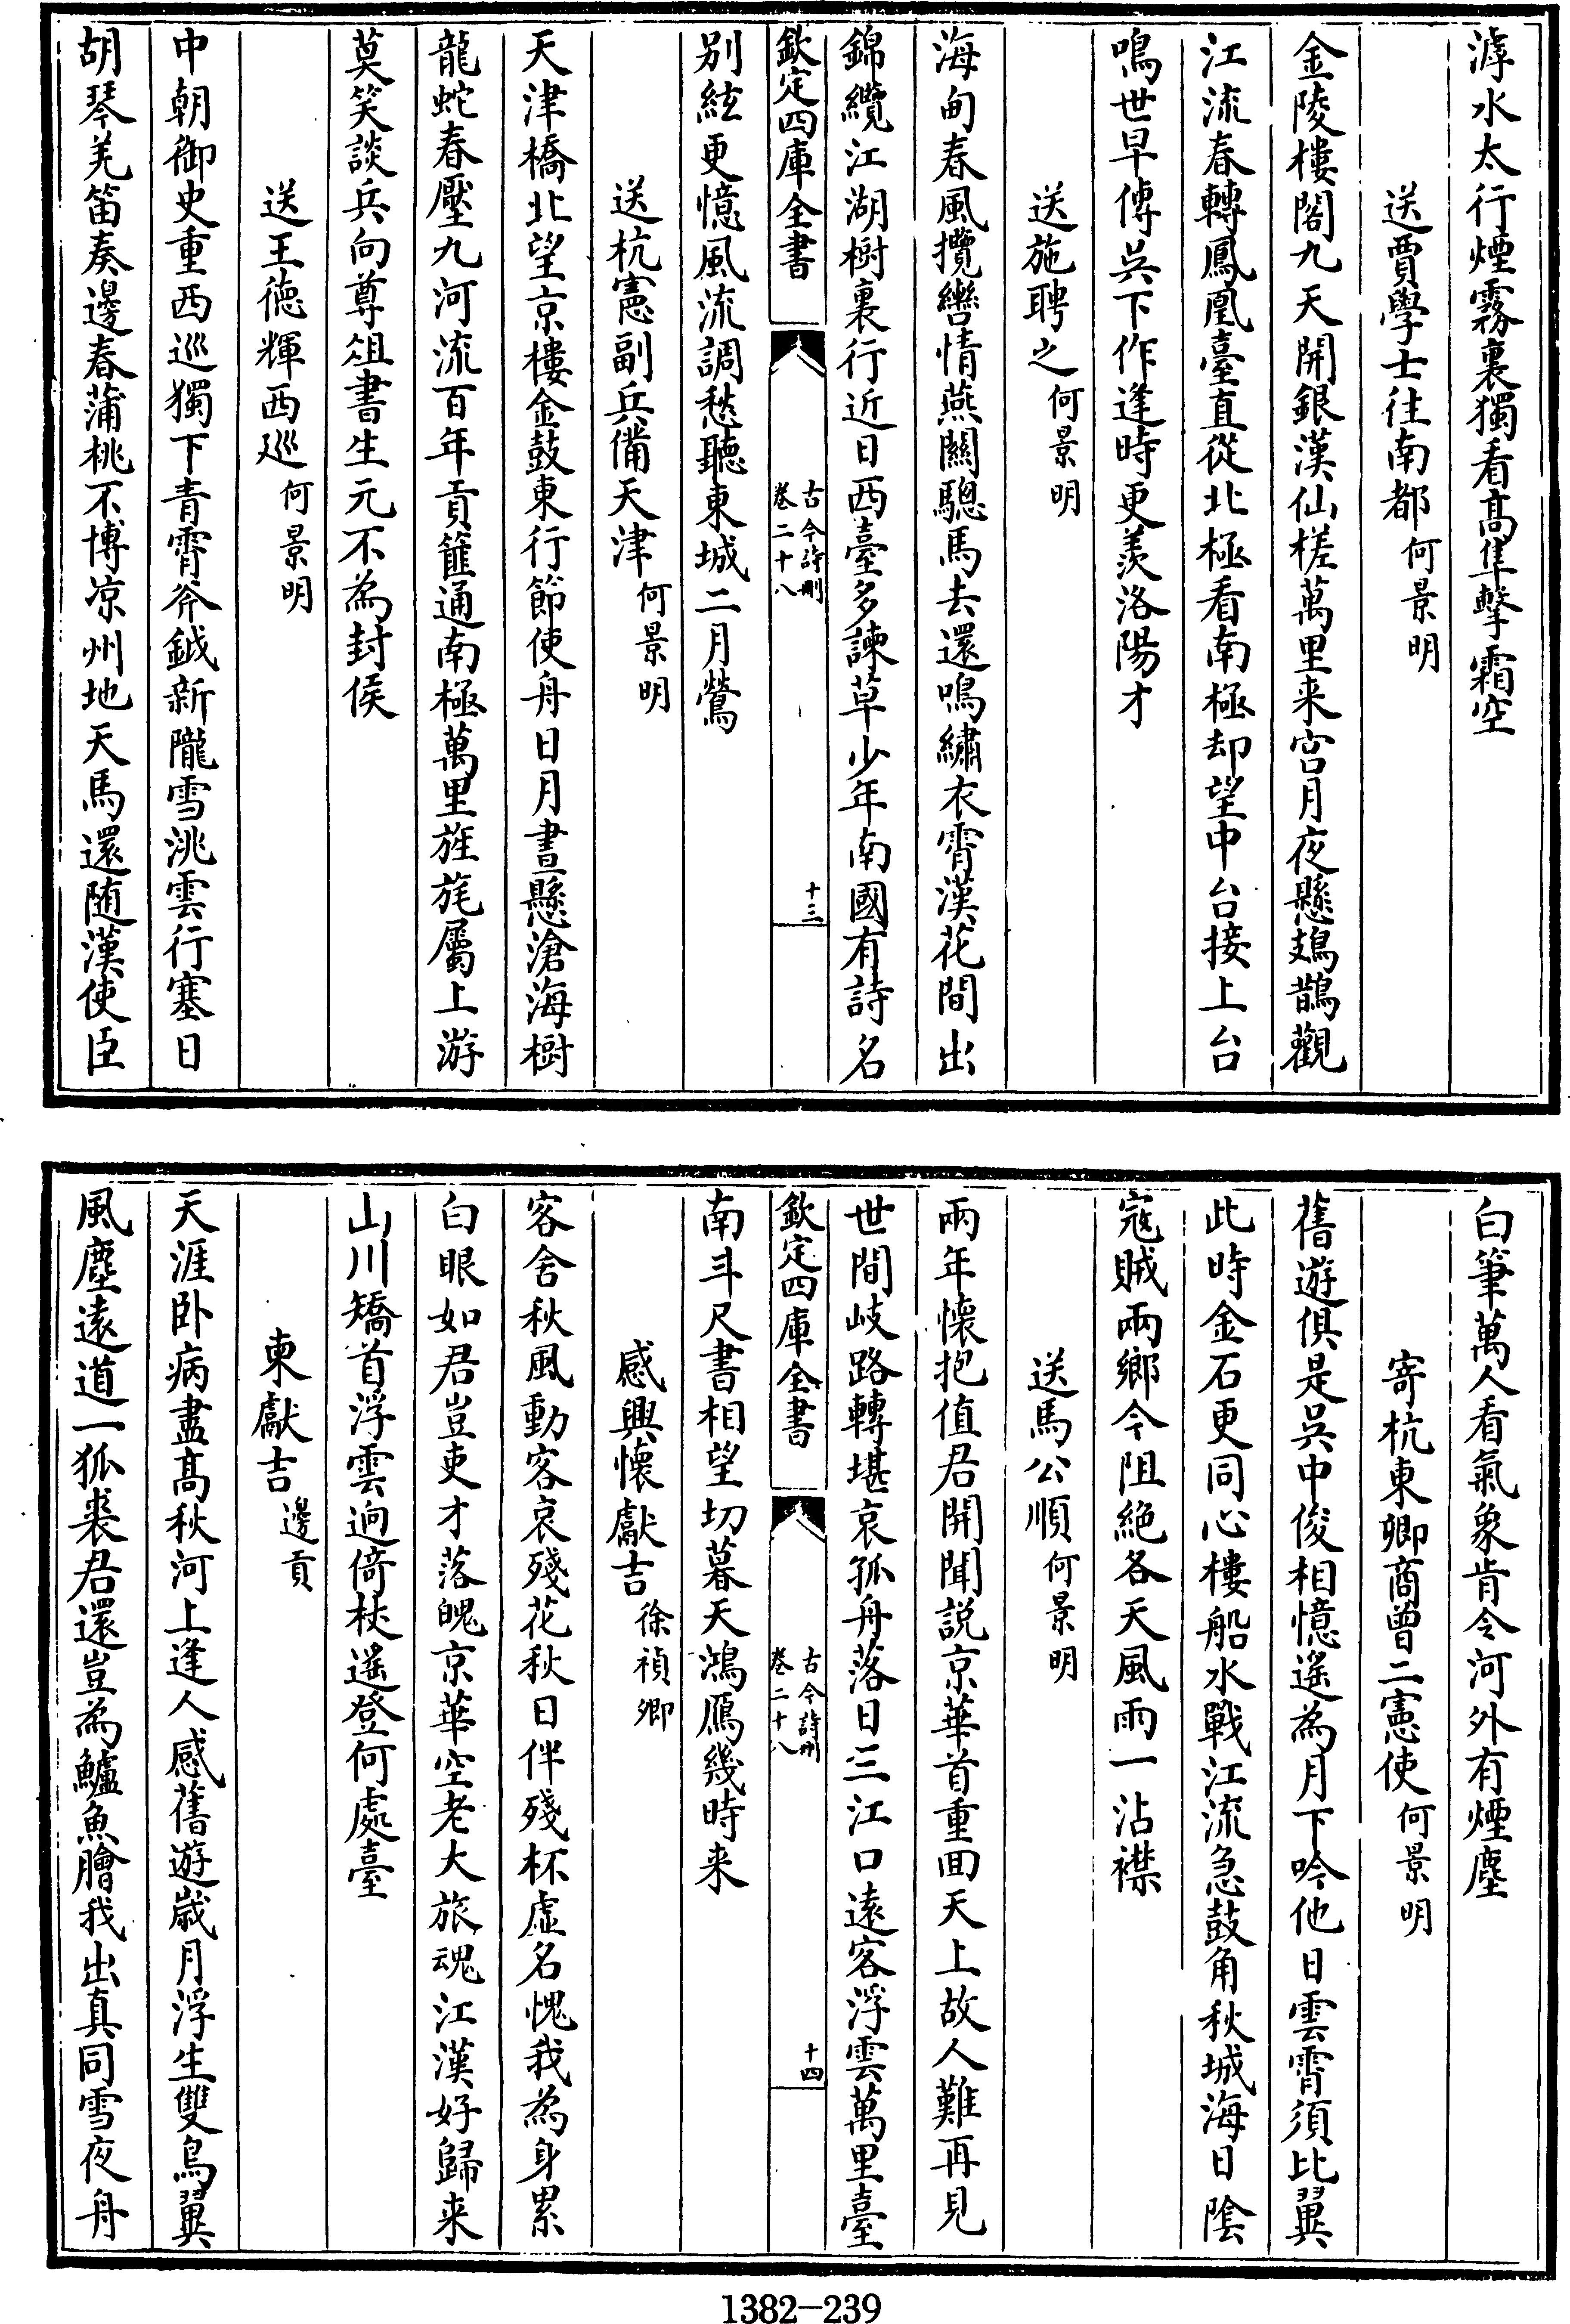 滹水太行煙霧裏獨看髙隼擊霜空
送賈學士往南都何景明
金陵樓閣九天開銀漢仙槎萬里来宫月夜懸鳷鵲觀
江流春轉鳳凰臺直從北極看南極却望中台接上台
鳴世早傳吳下作逢時更羨洛陽才
送施聘之何景明
海甸春風攬轡情燕關驄馬去還鳴繡衣霄漢花間出
錦纜江湖樹裏行近日西臺多諫草少年南國有詩名
欽定四庫全書
古今詩刪
卷二十八
十三
别絃更憶風流調愁聽東城二月鶯
送杭憲副兵備天津何景明
天津橋北望京樓金鼓東行節使舟日月晝懸滄海樹
龍蛇春壓九河流百年貢篚通南極萬里旌旄屬上游
莫笑談兵向尊俎書生元不為封侯
送王徳輝西廵何景明
中朝御史重西巡獨下青霄斧鉞新隴雪洮雲行塞日
胡琴羌笛奏邊春蒲桃不博凉州地天馬還随漢使臣
白筆萬人看氣象肯令河外有煙塵
寄杭東卿商曾二憲使何景明
舊遊俱是吳中俊相憶遙為月下吟他日雲霄須比翼
此時金石更同心樓船水戰江流急鼓角秋城海日陰
寇賊兩鄉今阻絶各天風雨一沾襟
送馬公順何景明
兩年懷抱值君開聞説京華首重囬天上故人難再見
世間歧路轉堪哀孤舟落日三江口逺客浮雲萬里臺
欽定四庫全書
古今詩刪
卷二十八
十四
南斗尺書相望切暮天鴻鴈幾時来
感興懷獻吉徐禎卿
客舍秋風動客哀殘花秋日伴殘杯虛名愧我為身累
白眼如君豈吏才落魄京華空老大旅魂江漢好歸来
山川矯首浮雲逈倚杖遙登何處臺
柬獻吉邊貢
天涯卧病盡髙秋河上逢人感舊遊嵗月浮生雙鳥翼
風塵逺道一狐裘君還豈為鱸魚膾我出真同雪夜舟
1382-239